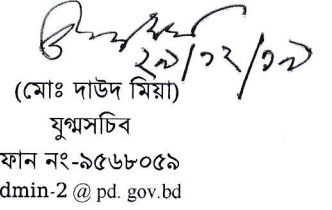 ২৯/১২/১৯
(মোঃ দাউদ মিয়া)
যুগ্মসচিব
ফান নং-৯৫৬৮০৫৯
dmin-2 @ pd. gov.bd